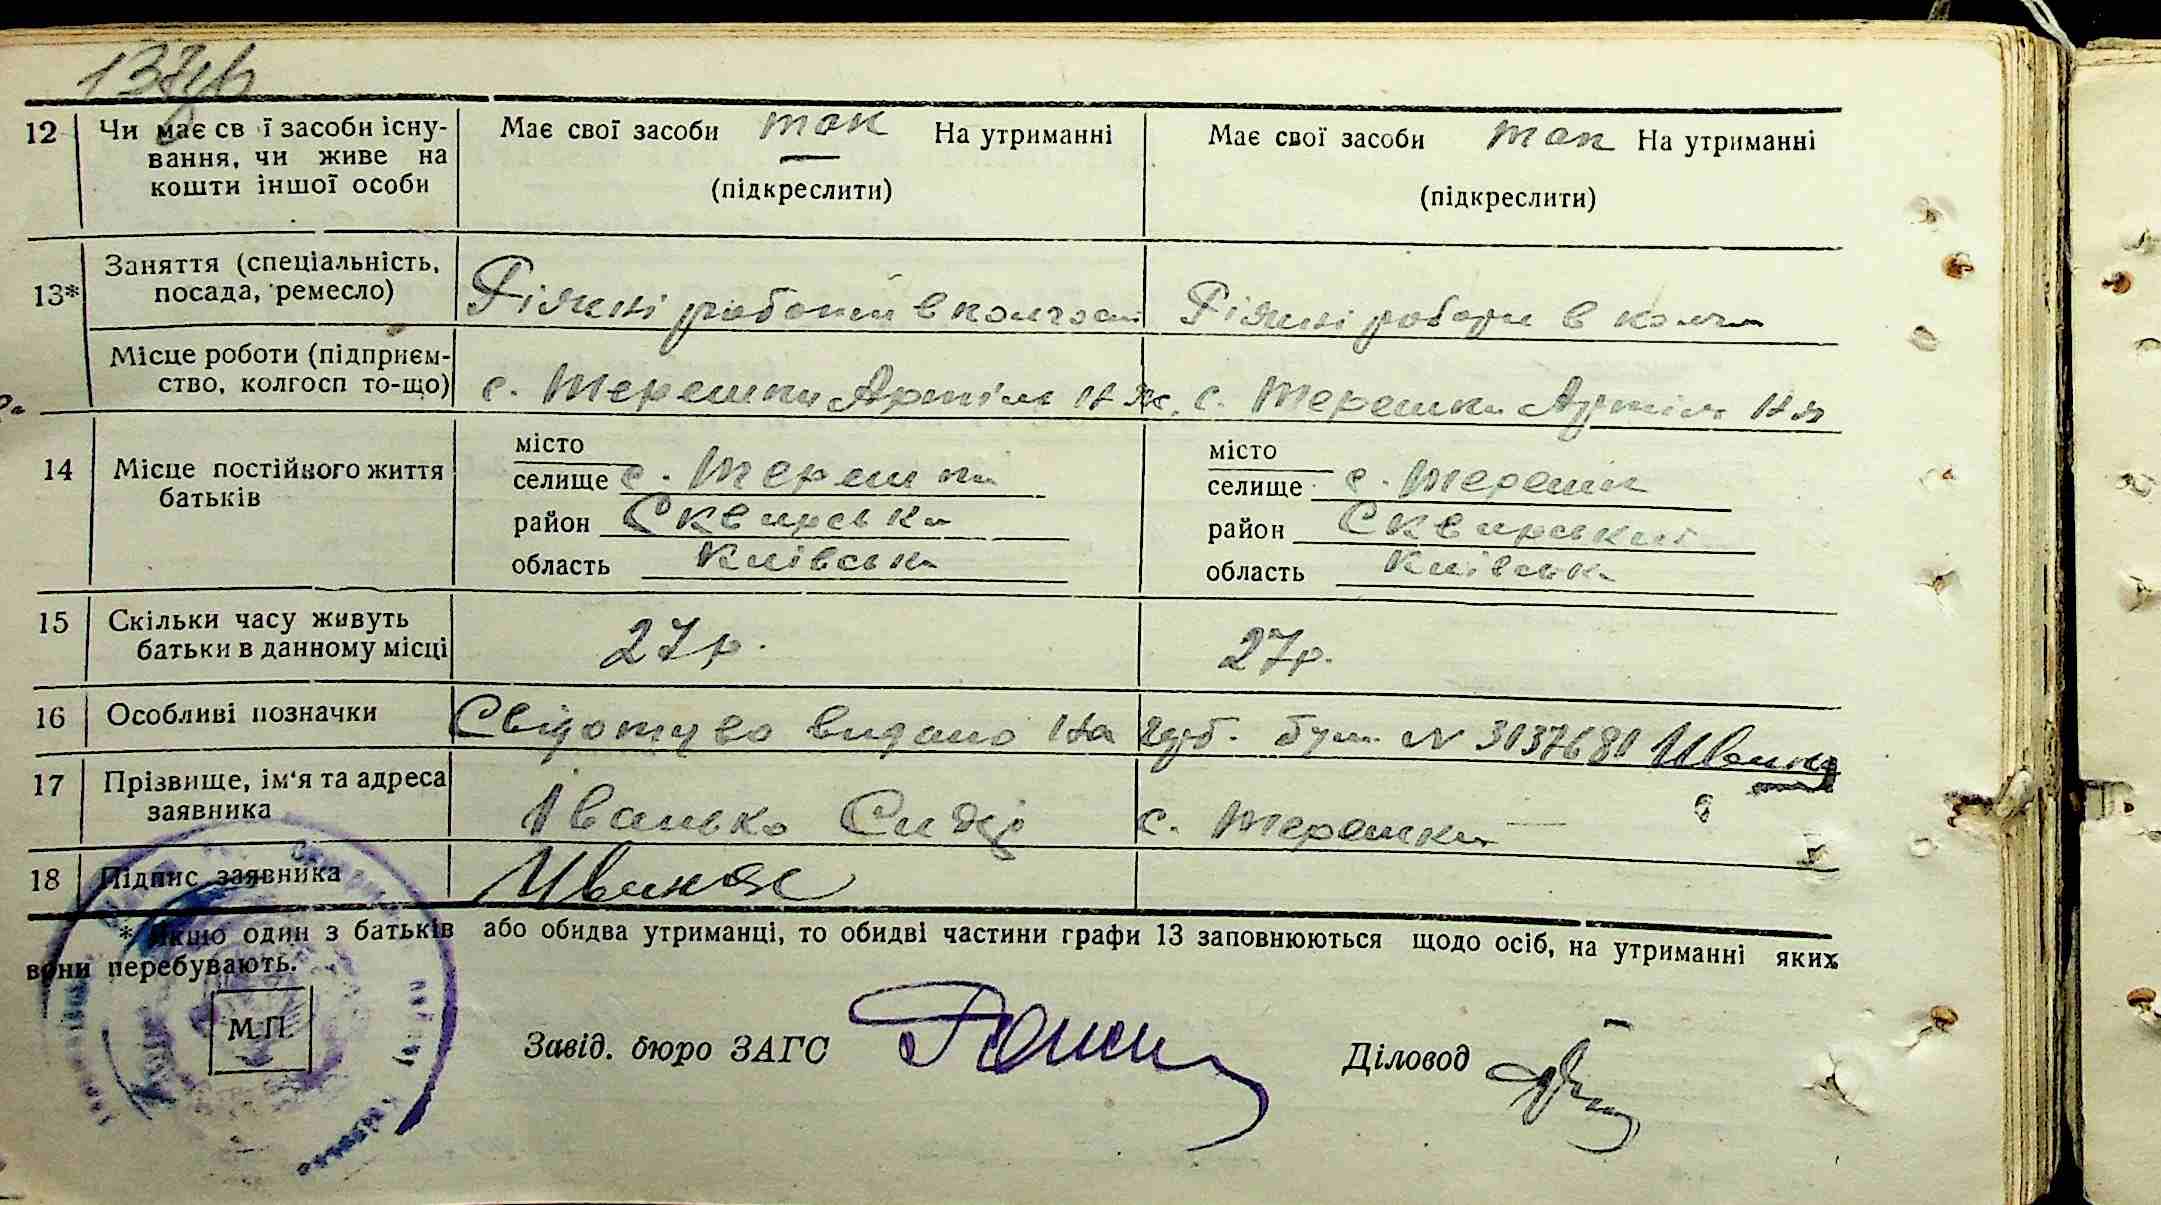 13зв
12 Чи має св ї засоби існу- Має свої засоби так На утриманні Має свої засоби так На утриманні
вання, чи живе на
кошти іншої особи (підкреслити) (підкреслити)
13* Заняття (спеціальність,
посада, ремесло) Різжні роботи в колгоспі Різжні роботи в колг
Місце роботи (підприєм-
ство, колгосп то-що) с. Терешки Артіль Н Ж. с. Терешки Артіль Н Ж
14 Місце постійного життя
батьків
місто місто
селище с. Терешки селище с. Терешки
район Сквирськи район Сквирський
область Київськ область Київськ
15 Скільки часу живуть
батьки в данному місці 27 р. 27 р.
16 Особливі позначки Свідотцво видано На бум. N 3137681
17 Прізвище, ім'я та адреса
заявника Іванько Сидір с. Терешки
18 Підпис заявника
* Якщо один з батьків або обидва утриманці, то обидві частини графи 13 заповнюються щодо осіб, на утриманні яких
вони перебувають.
М.П.
Завід. бюро ЗАГС Діловод